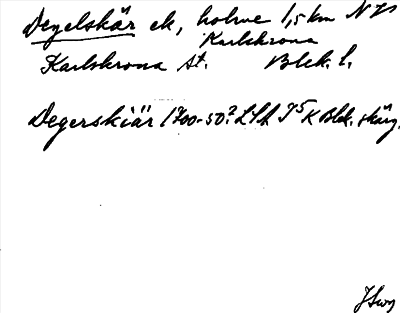 Degelskär ek, holme 1,5 km N
Karlskrona
Karlskrona st. Blek. l.
Degerskiär 1700-50? LSA I5 K Blek. skärg.